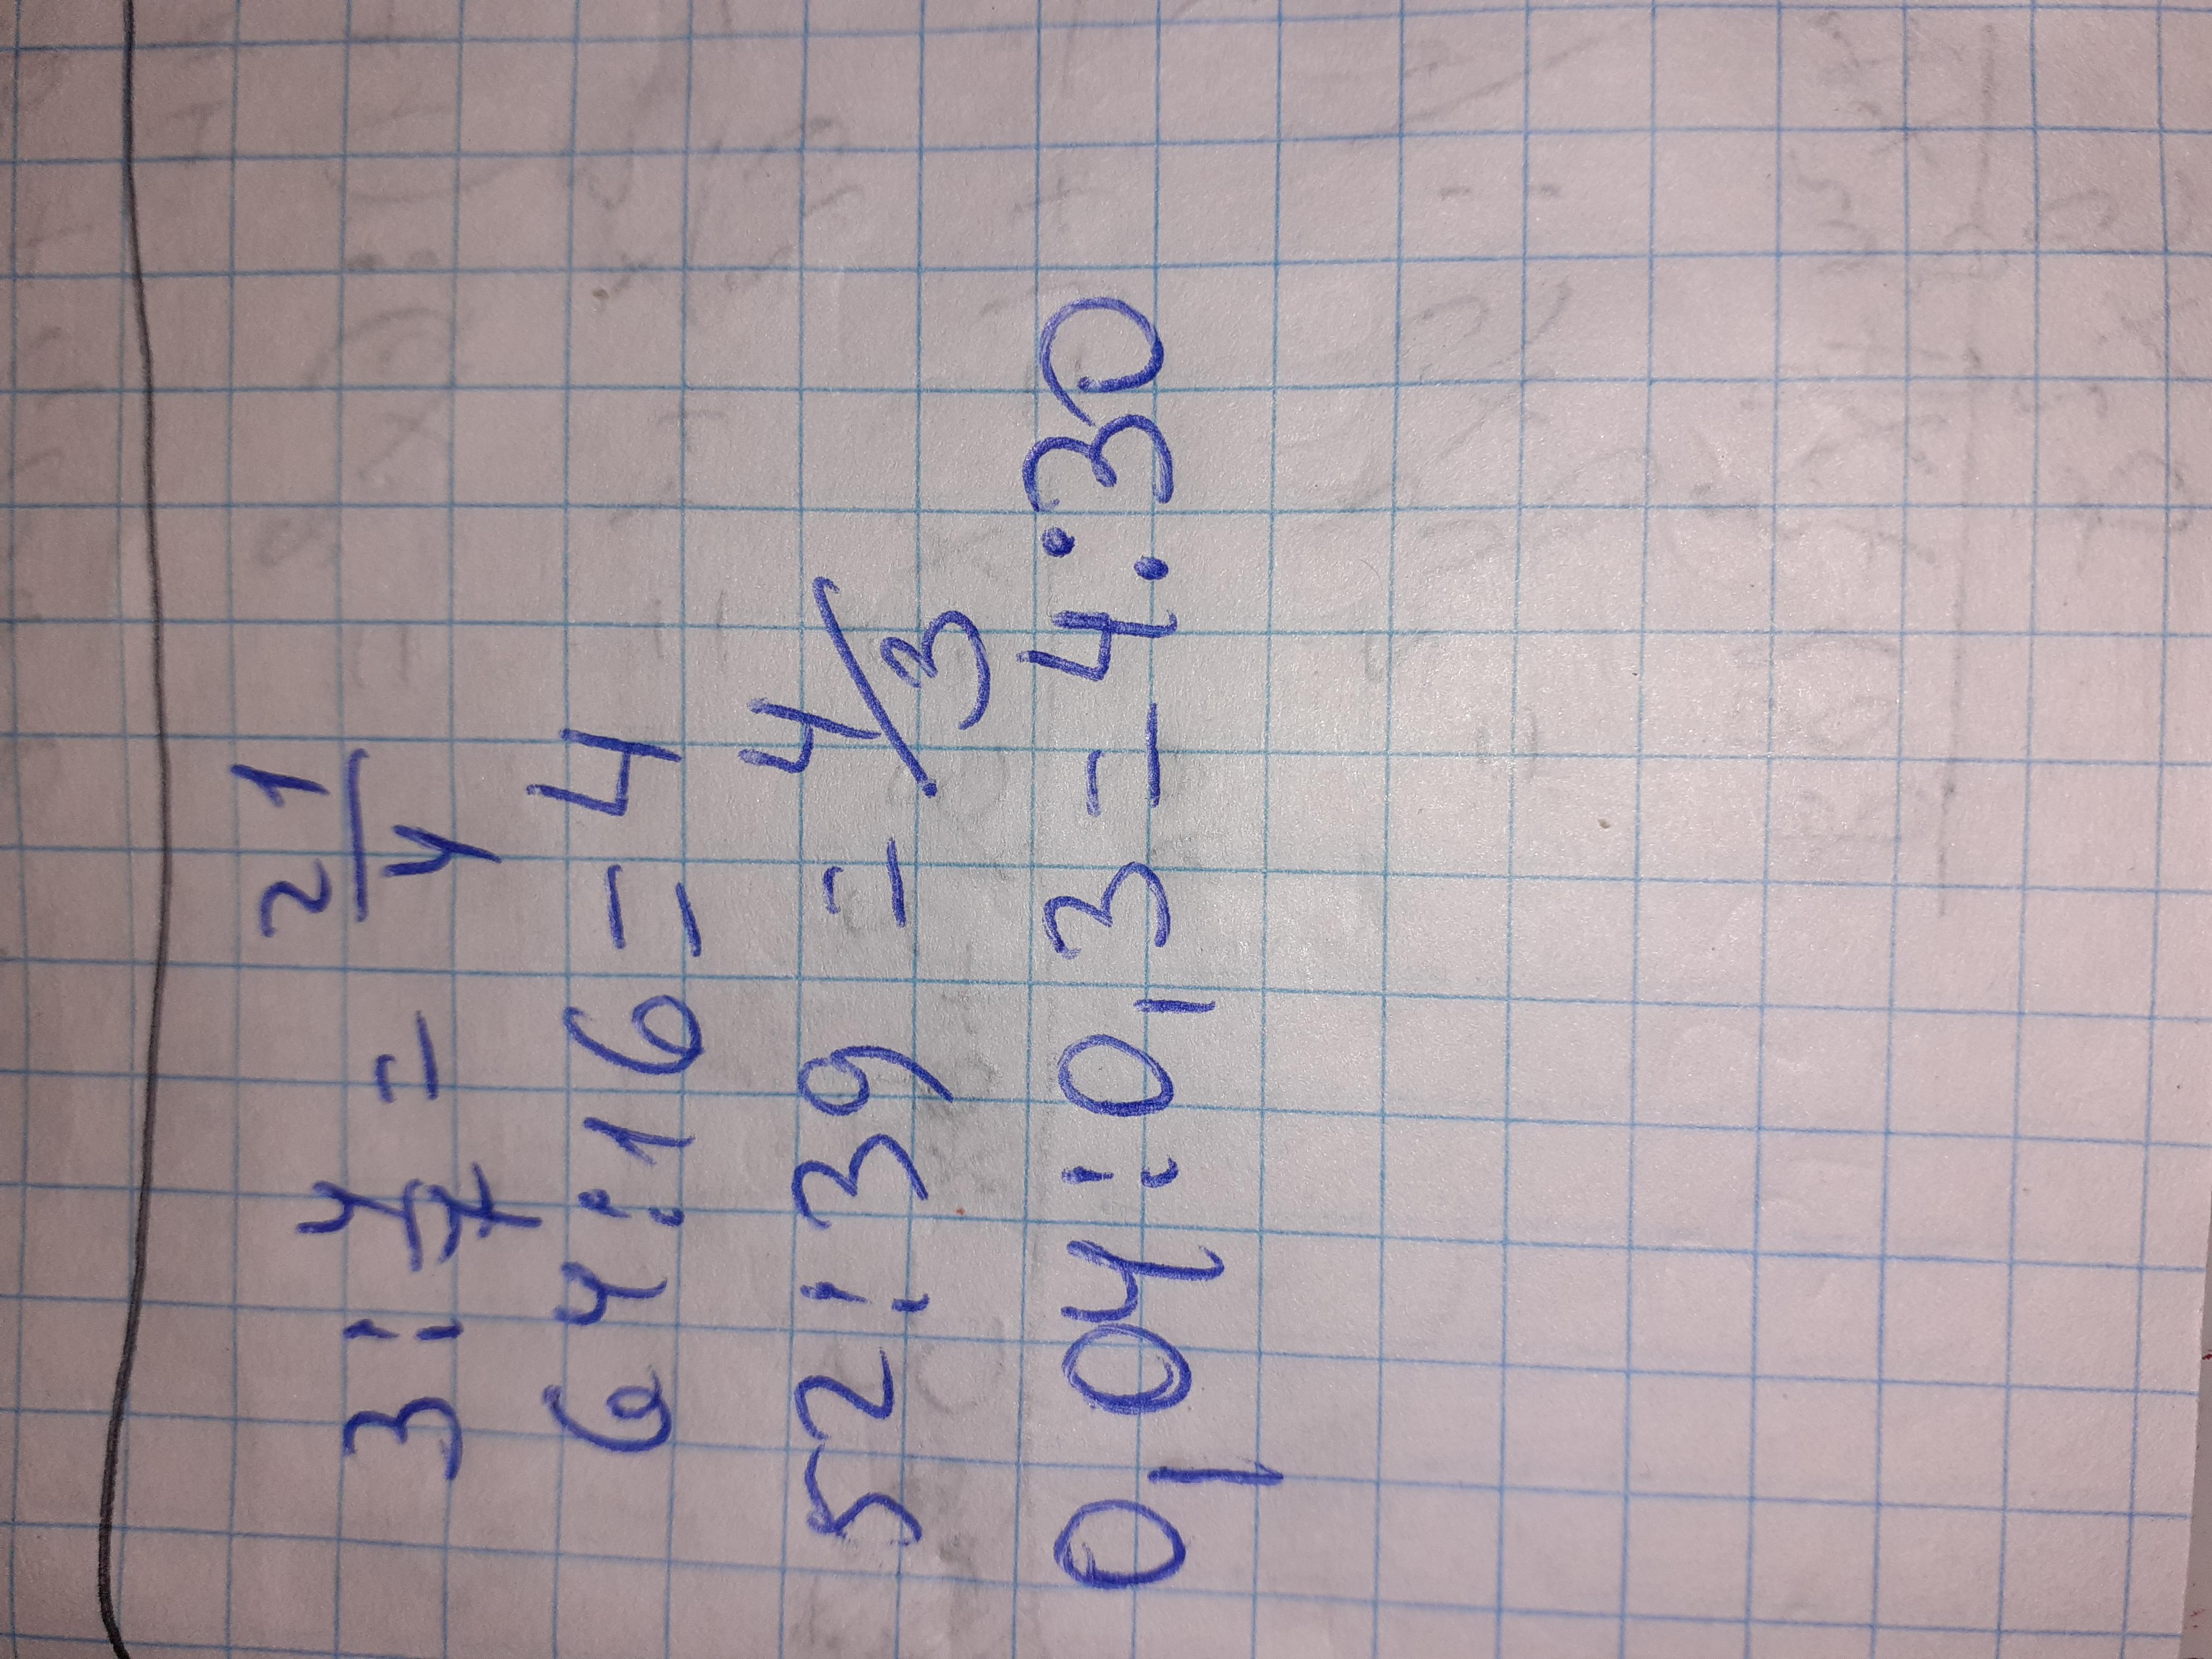 3 : 4/7 = 21/4
64 : 16 = 4
52 : 39 = 4/3
0,04 : 0,3 = 4 : 30